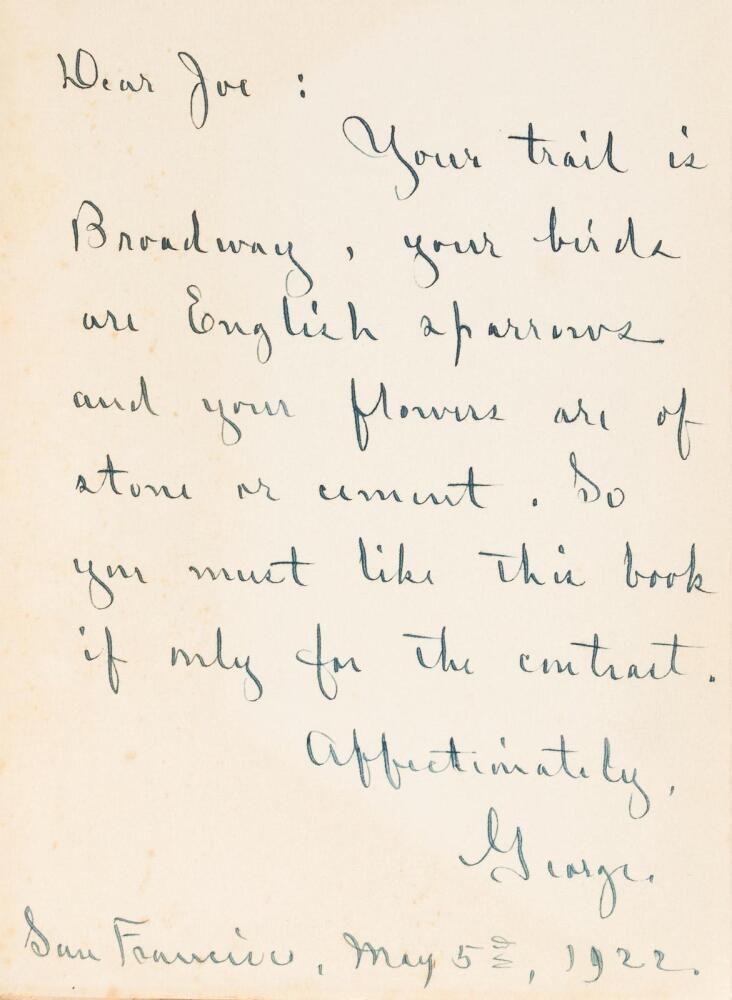 Dear Joe :
Your trail is
Broadway, your birds
are English sparrows
and your flowers are of
stone or cement. So
you must like this book
if only for the contrast.
Affectionately,
George.
San Francisco, May 5th, 1922.